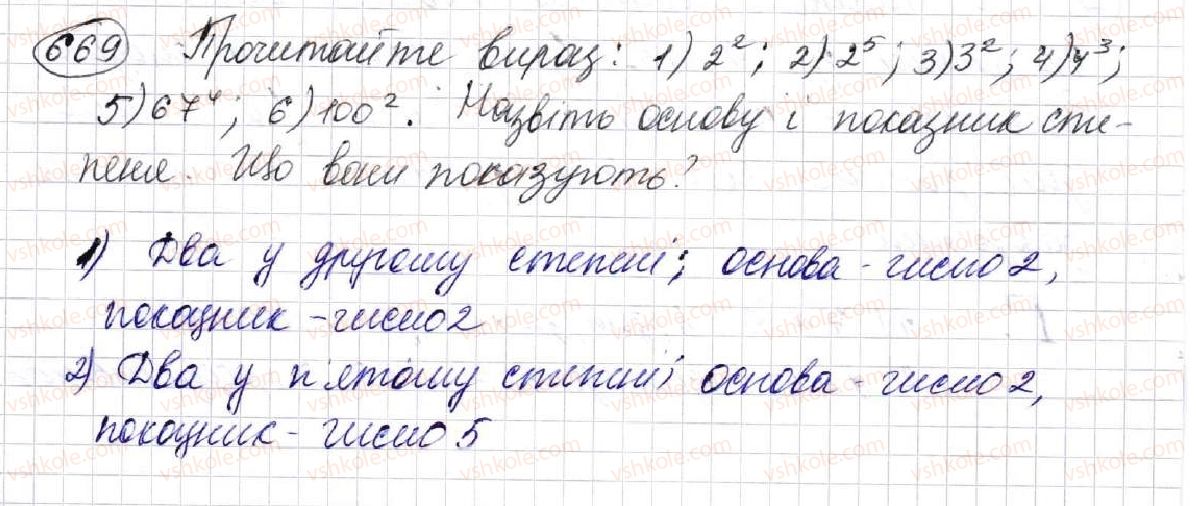 669 Прочитайте вираз: 1) 2²; 2) 2⁵; 3) 3²; 4) 4³;
5) 67⁴; 6) 100². Назвіть основу і показник сте-
пеня. Що вони показують?
1) Два у другому степені; основа - число 2,
показник - число 2
2) Два у п'ятому степені; основа - число 2,
показник - число 5